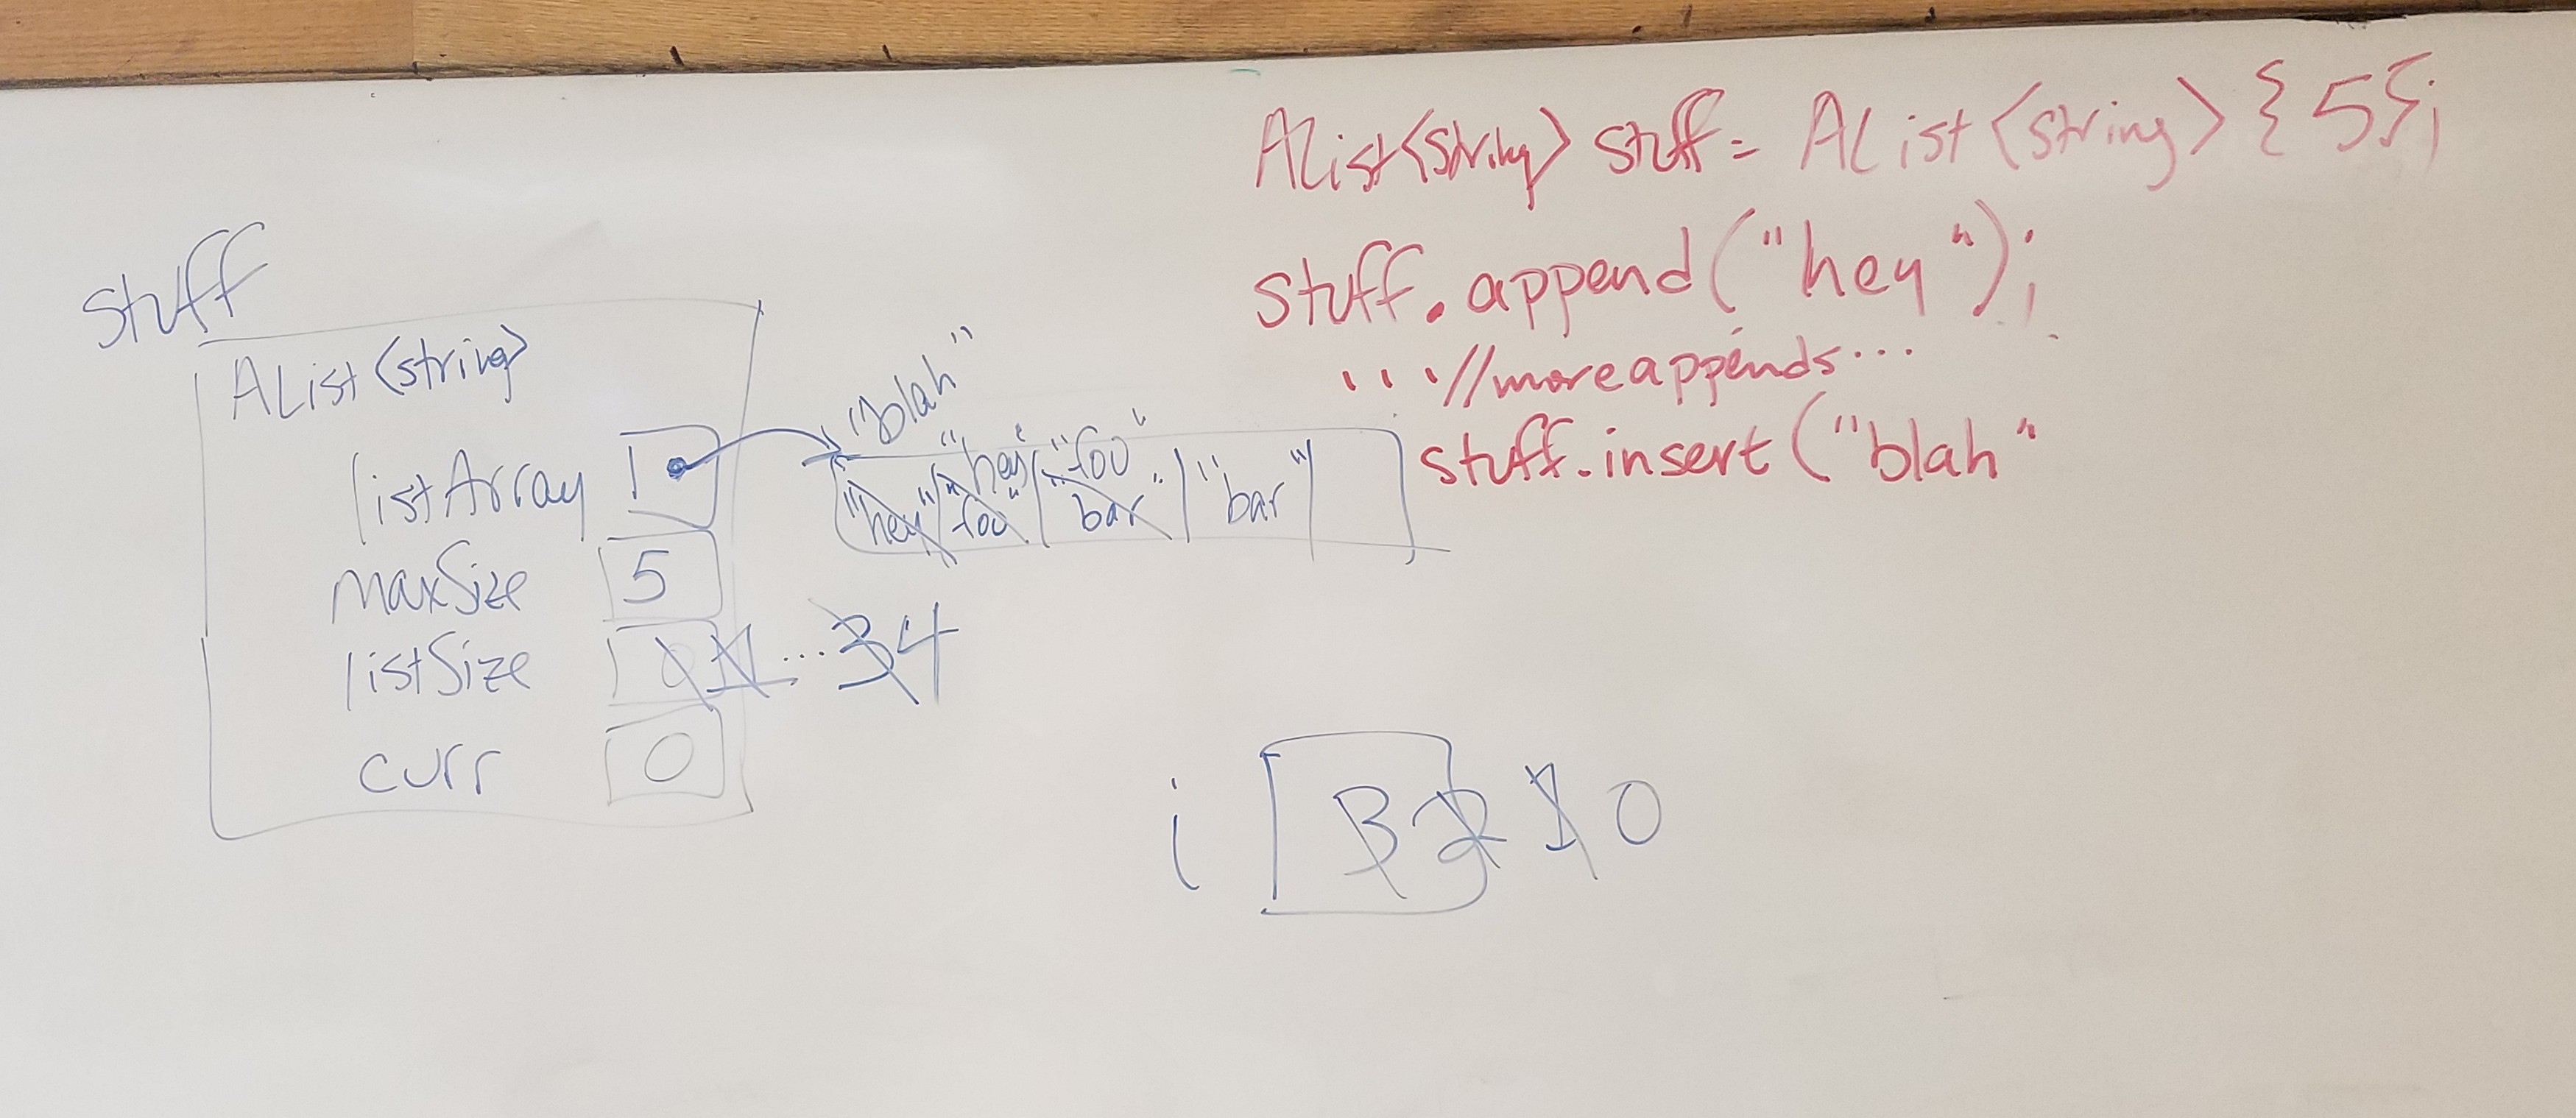 AList<string> stuff = AList<string>{5};
stuff.append("hey");
...//more appends...
stuff.insert("blah"
stuff
AList<string>
listArray
"blah"
"hey" "foo"
"hey" "foo" "bar" "bar"
maxSize 5
listSize 0 1 ... 3 4
curr 0
i 3 2 1 0